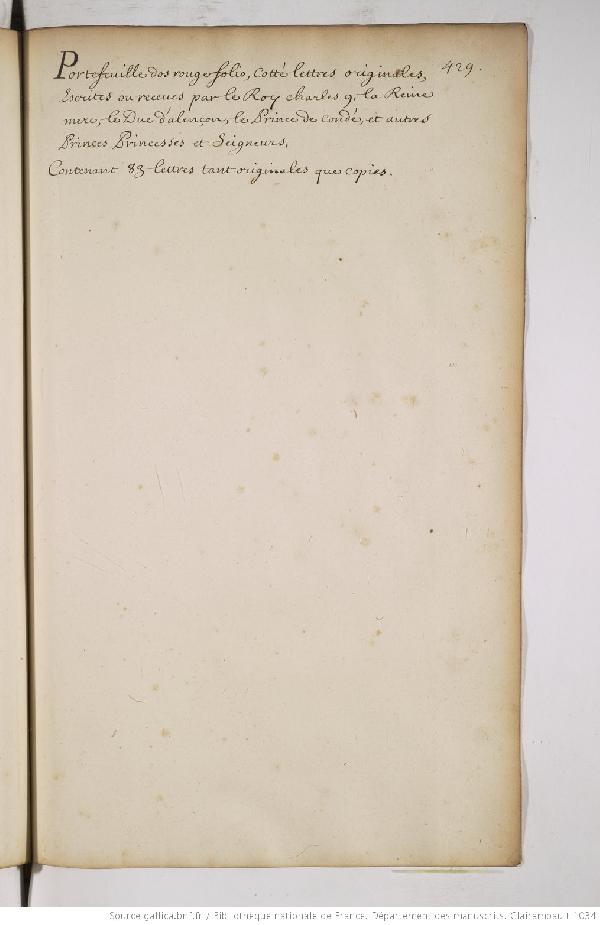 Portefeuille dos rouge folio, Cotté lettres originales, 429.
Escrites ou receues par le Roy charles 9, la Reine
mere, le Duc d'alençon, le Prince de Condé, et autres
Princes Princesses et Seigneurs.
Contenant 83 lettres tant originales que copies.
Source gallica.bnf.fr / Bibliothèque nationale de France. Département des manuscrits. Clairambault 1034